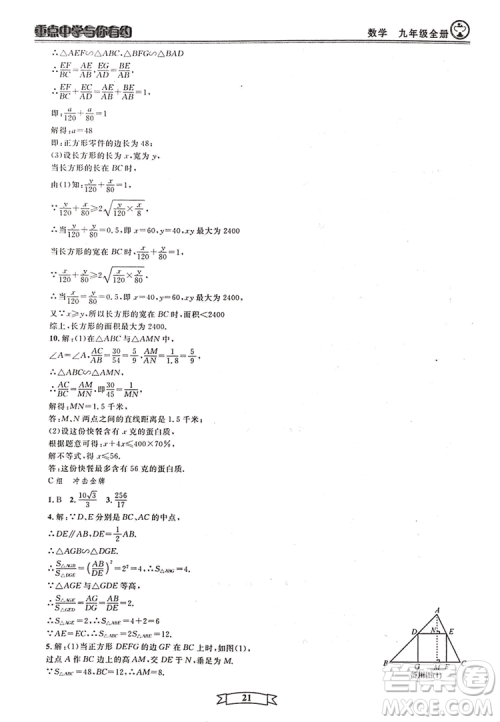 重点中学与你有约
数学 九年级全册
∴△AEF∽△ABC,△BEG∽△BAD
∴EF/BC=AE/AB,EG/AD=BE/AB
∴EF/BC+EG/AD=AE/AB+BE/AB=1,
即:a/120+a/80=1
解得:a=48
即:正方形零件的边长为48;
(3)设长方形的长为x,宽为y,
当长方形的长在BC时,
由(1)知:x/120+y/80=1
∵x/120+y/80≥2√(x/120·y/80)
∴当x/120=y/80=0.5,即x=60,y=40,xy最大为2400
当长方形的宽在BC时,
∵y/120+x/80≥2√(y/120·x/80)
∴当y/120=x/80=0.5,即x=40,y=60,xy最大为2400
又∵x≥y,所以长方形的宽在BC时,面积<2400
综上,长方形的面积最大为2400.
10.解:(1)在△ABC与△AMN中,
∠A=∠A,AC/AB=30/54=5/9,AM/AN=1/1.8=5/9,
∴△ABC∽△AMN,
∴AC/BC=AM/MN,即30/45=1/MN,
解得:MN=1.5千米,
答:M、N两点之间的直线距离是1.5千米;
(2)设这份快餐含有x克的蛋白质,
根据题意可得:x+4x≤400×70%,
解不等式,得x≤56.
答:这份快餐最多含有56克的蛋白质.
C组 冲击金牌
1.B 2.10√3/3 3.256/17
4.解:∵D、E分别是BC、AC的中点,
∴DE∥AB,
∴△AGB∽△DGE,
∴S△AGB/S△DGE=(AB/DE)²=2²=4
∵△AGE与△GED等高,
∴S△AGE/S△GED=AG/DG=AB/DE=2
∴S△AGE=2,∴S△ADE=4+2=6
∵AE=EC,∴S△ABC=12
5.解:(1)当正方形DEFG的边GF在BC边上时,如图(1),
过点A作BC边上的高AM,交DE于N,垂足为M.
21